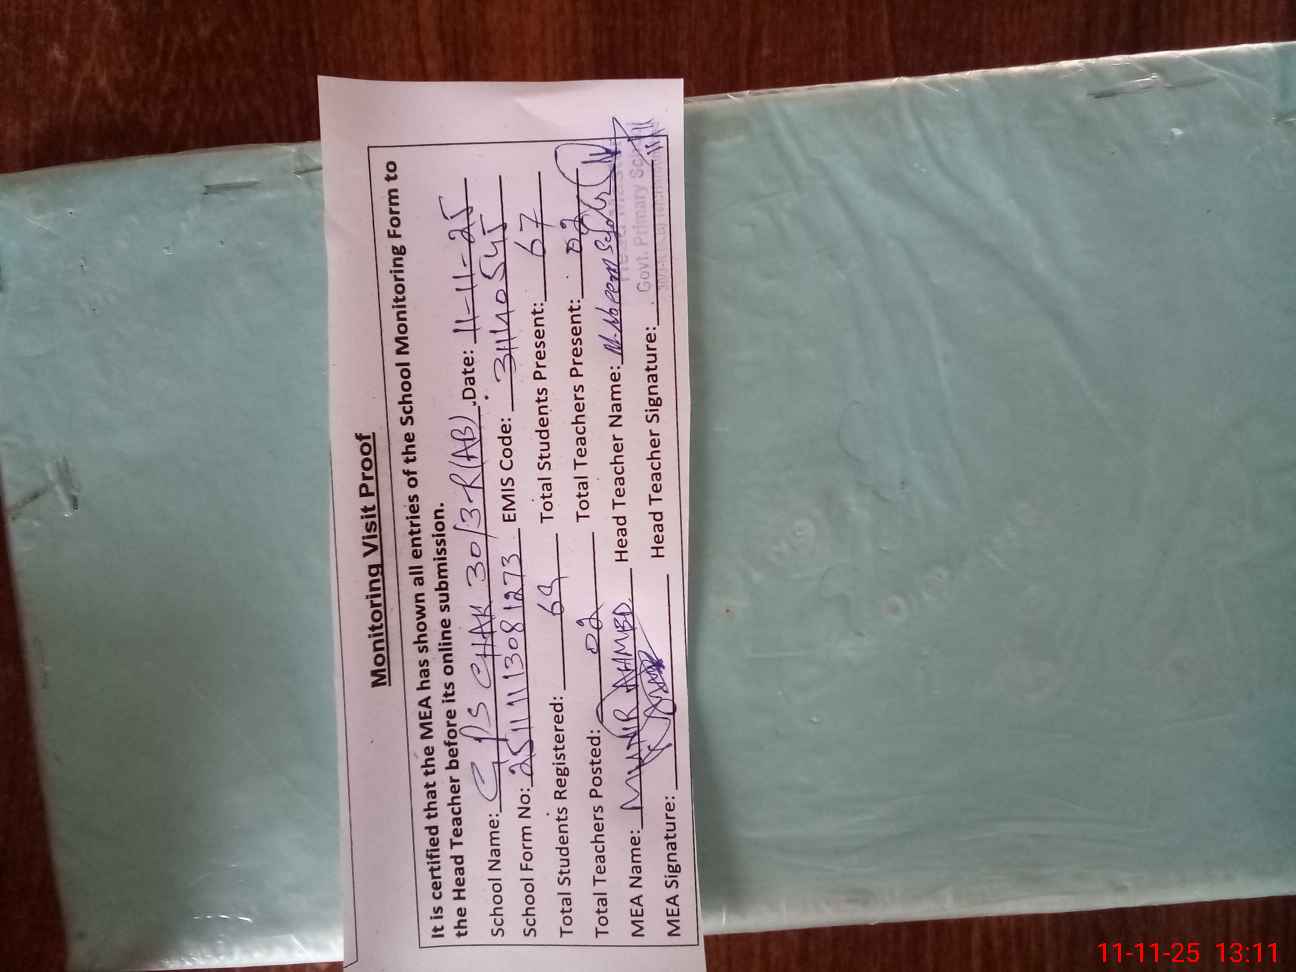 Monitoring Visit Proof
It is certified that the MEA has shown all entries of the School Monitoring Form to
the Head Teacher before its online submission.
School Name: GPS CHAK 30/3-R(AB) .Date: 11-11-25
School Form No: 25111113081273 EMIS Code: 31140545
Total Students Registered: 69 Total Students Present: 67
Total Teachers Posted: 02 Total Teachers Present: 02
MEA Name: MUNIR AHMED Head Teacher Name: M. Naeem
MEA Signature: Head Teacher Signature:
Govt. Primary
11-11-25 13:11